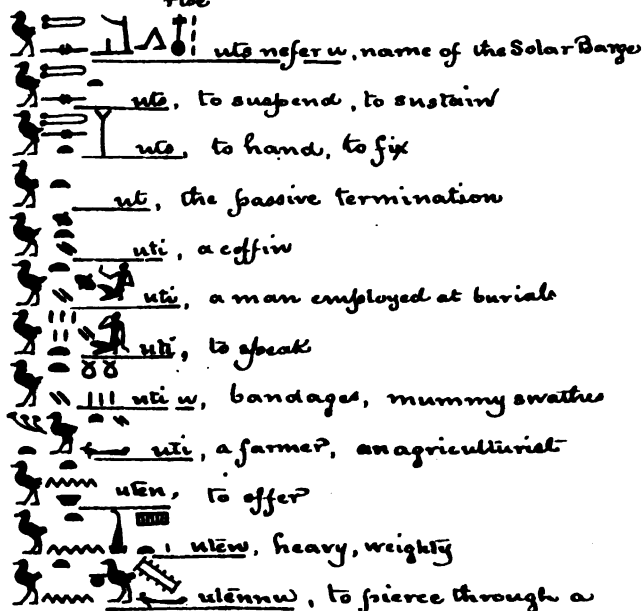 rise
uts nefer w, name of the Solar Barge
uts, to suspend, to sustain
uts, to hand, to fix
ut, the passive termination
uti, a coffin
uti, a man employed at burials
uti, to speak
uti w, bandages, mummy swathes
uti, a farmer, an agriculturist
uten, to offer
utew, heavy, weighty
utennu, to pierce through a